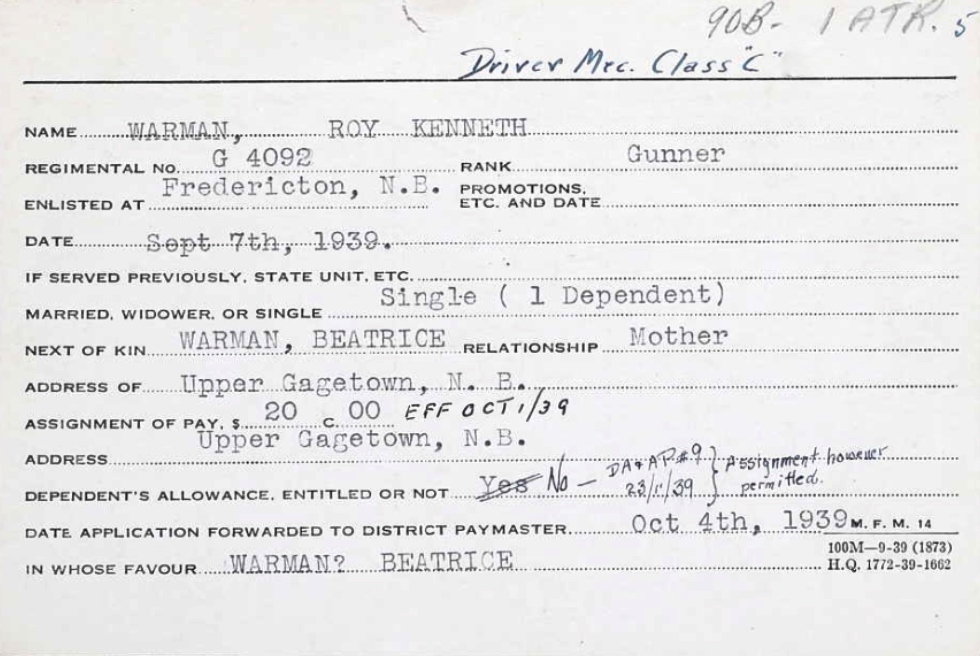 90B- 1 ATR. 5
Driver Mec. Class "C"
NAME WARMAN, ROY KENNETH
REGIMENTAL NO. G 4092 RANK Gunner
ENLISTED AT Fredericton, N.B. PROMOTIONS, ETC. AND DATE
DATE Sept 7th, 1939.
IF SERVED PREVIOUSLY, STATE UNIT, ETC.
MARRIED, WIDOWER, OR SINGLE Single ( 1 Dependent)
NEXT OF KIN WARMAN, BEATRICE RELATIONSHIP Mother
ADDRESS OF Upper Gagetown, N. B.
ASSIGNMENT OF PAY, $ 20 C. 00 EFF OCT 1/39
ADDRESS Upper Gagetown, N.B.
DEPENDENT'S ALLOWANCE, ENTITLED OR NOT Yes No - DA & AP #9 23/1/39 } Assignment however permitted.
DATE APPLICATION FORWARDED TO DISTRICT PAYMASTER Oct 4th, 1939 M. F. M. 14
100M—9-39 (1873)
IN WHOSE FAVOUR WARMAN? BEATRICE H.Q. 1772-39-1662